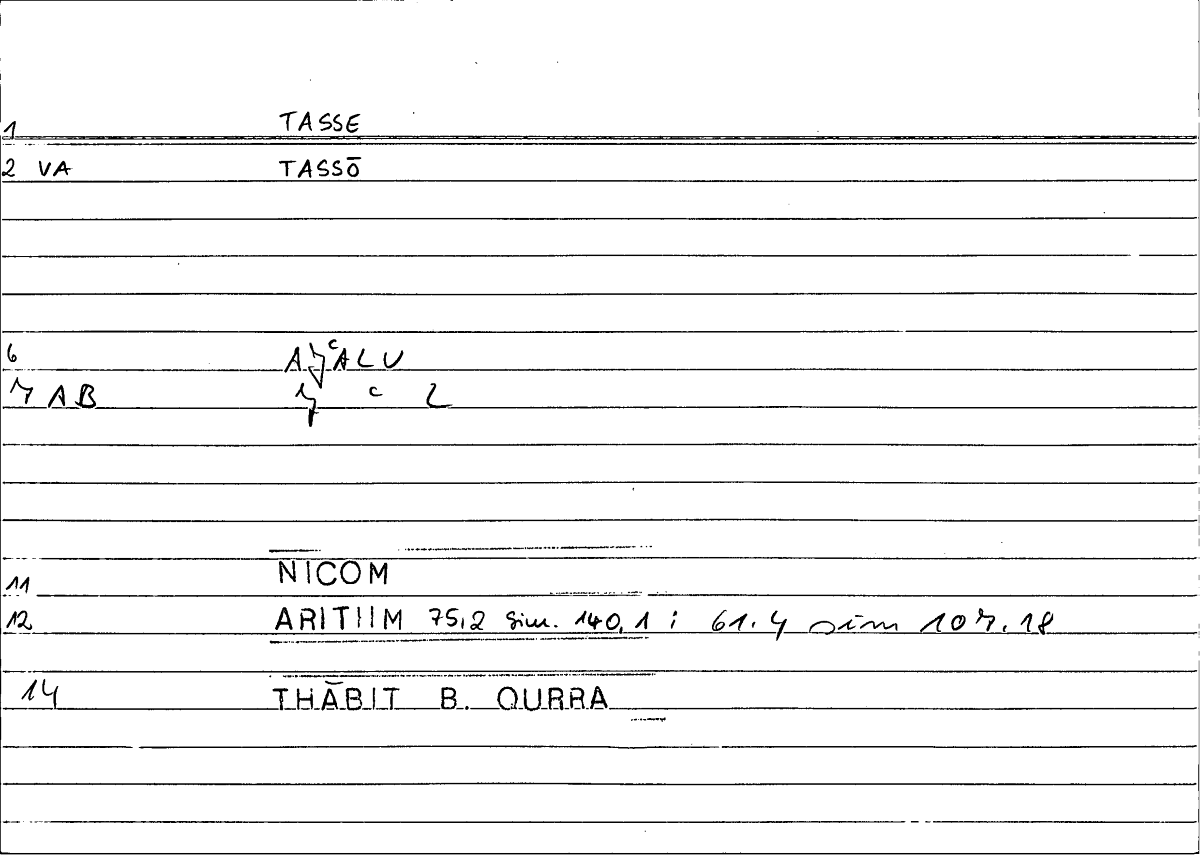 1 TASSE
2 VA TASSŌ
6
7 AB ʿ L
11 NICOM
12 ARITHM 75,2 sim. 140,1 ; 61.4 sim 107.18
14 THĀBIT B. QURRA